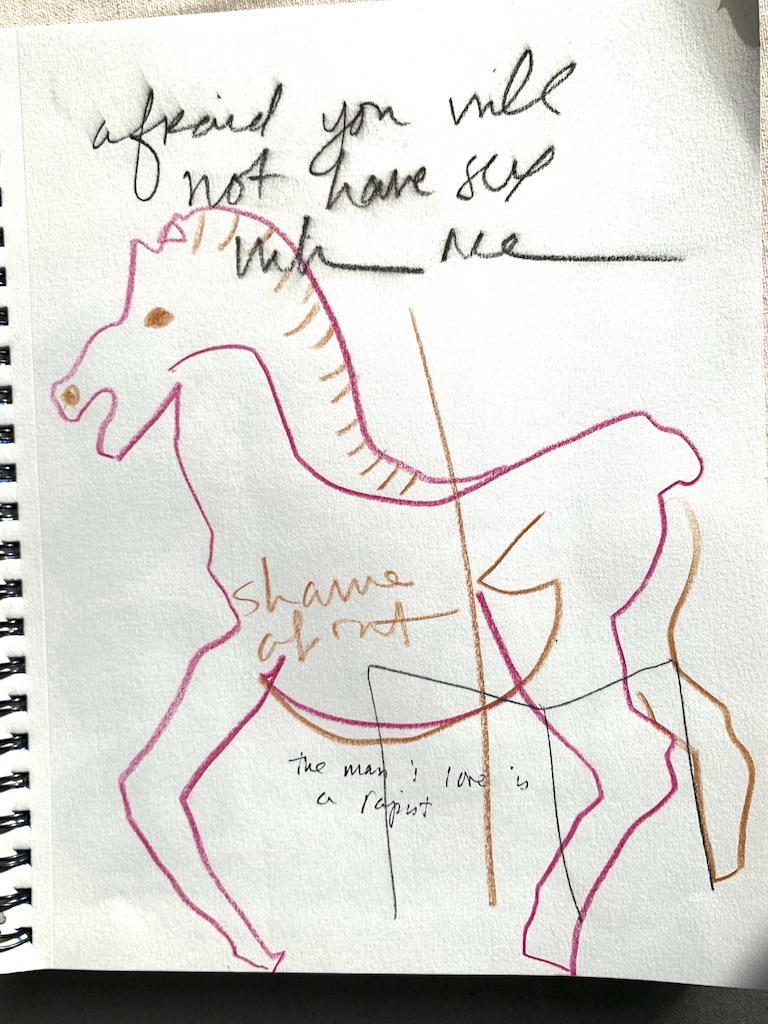 afraid you will
not have sex
me
shame
the man i love is
a rapist